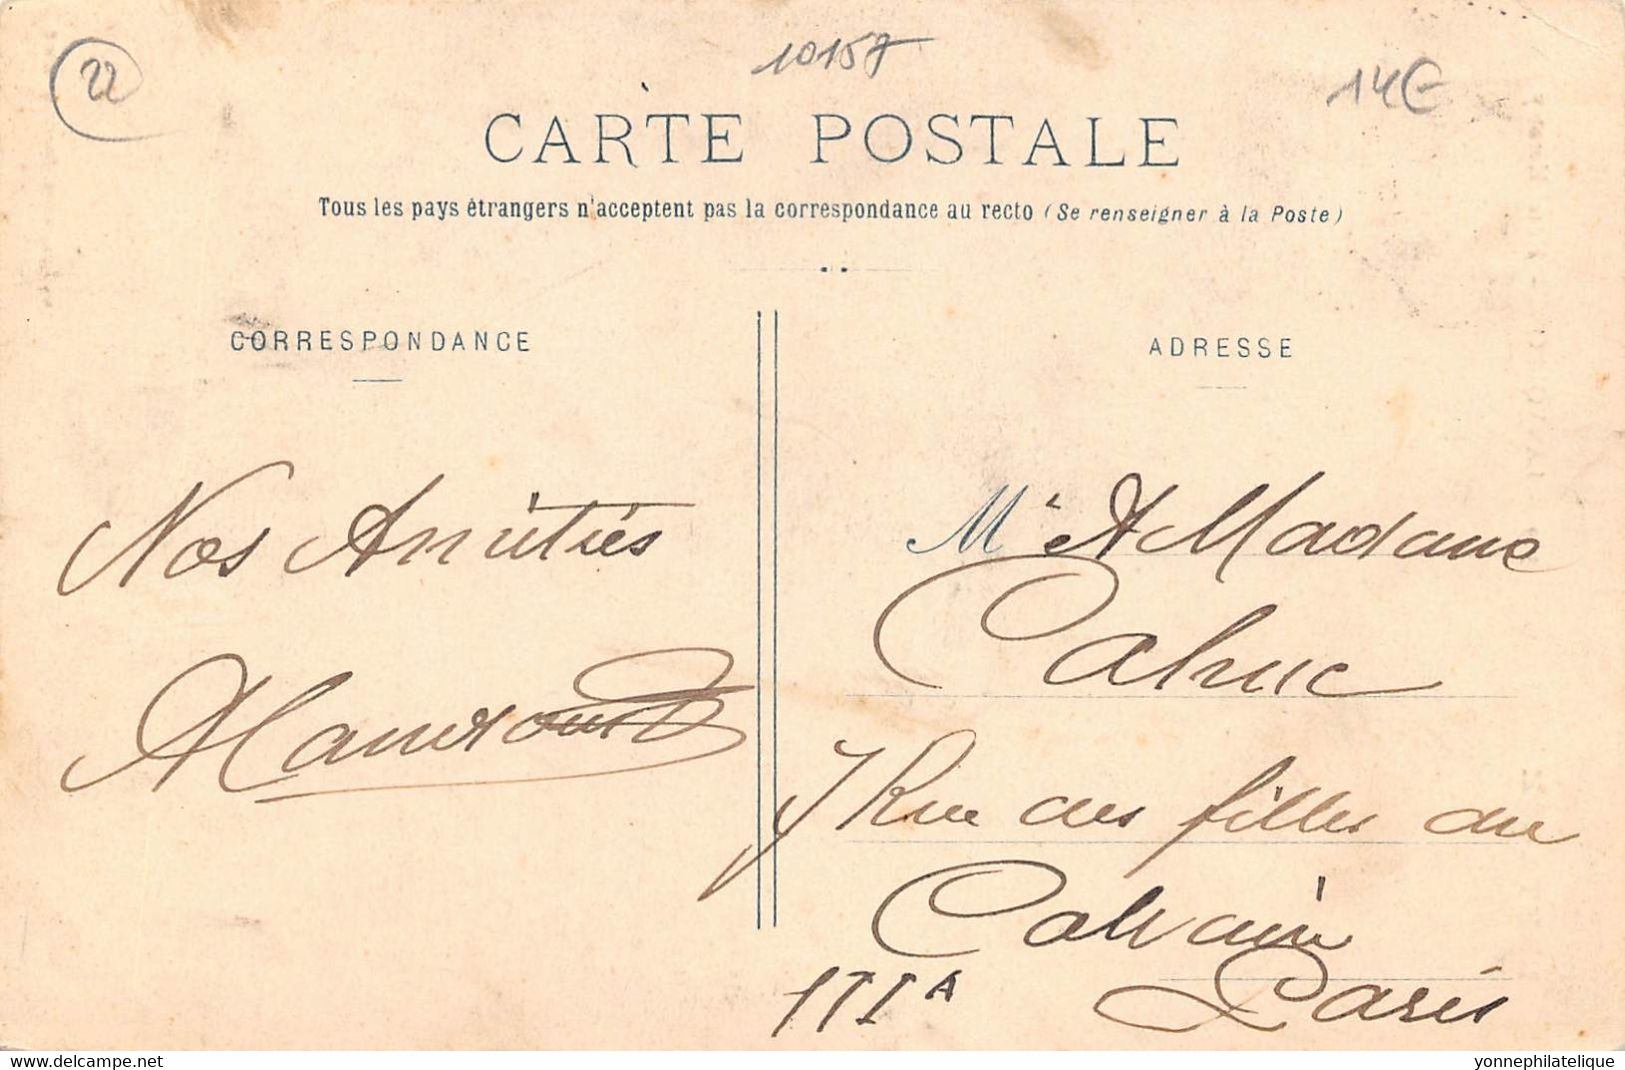 22
10157
14€
CARTE POSTALE
Tous les pays étrangers n'acceptent pas la correspondance au recto (Se renseigner à la Poste)
CORRESPONDANCE
ADRESSE
Nos Amitiés
Mr et Madame
Cahuc
7 Rue des filles du
Calvaire
Paris
IIIA
delcampe.net
yonnephilatelique